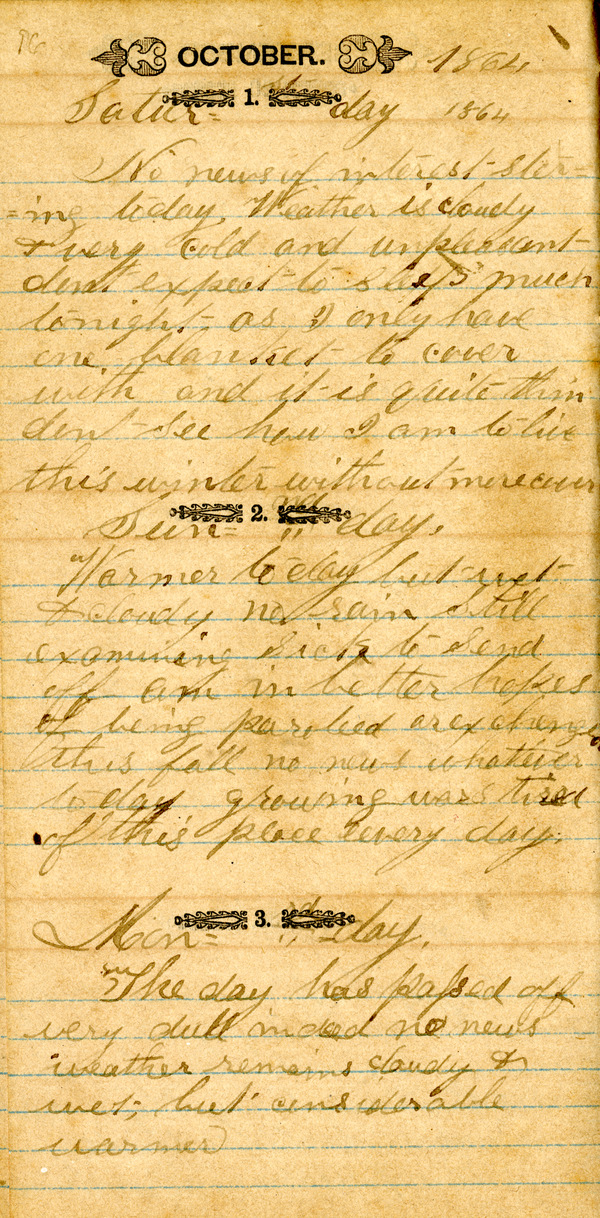 96
OCTOBER. 1864
1.
Satur= day 1864
No news of interest ster=
=ing today. Weather is cloudy
& very cold and unpleasant
dont expect to sleep much
tonight as I only have
one blanket to cover
with and it is quite thin
dont see how I am to live
this winter without more cover
2.
Sun= nd day.
Warmer to day but wet
& cloudy no rain Still
examining Sick to Send
off am in better hopes
of being paroled or exchanged
this fall no news whatever
to day growing more tired
of this place every day.
3.
Mon= rd day.
The day has passed off
very dull indeed no news
weather remains cloudy &
wet, but considerable
warmer